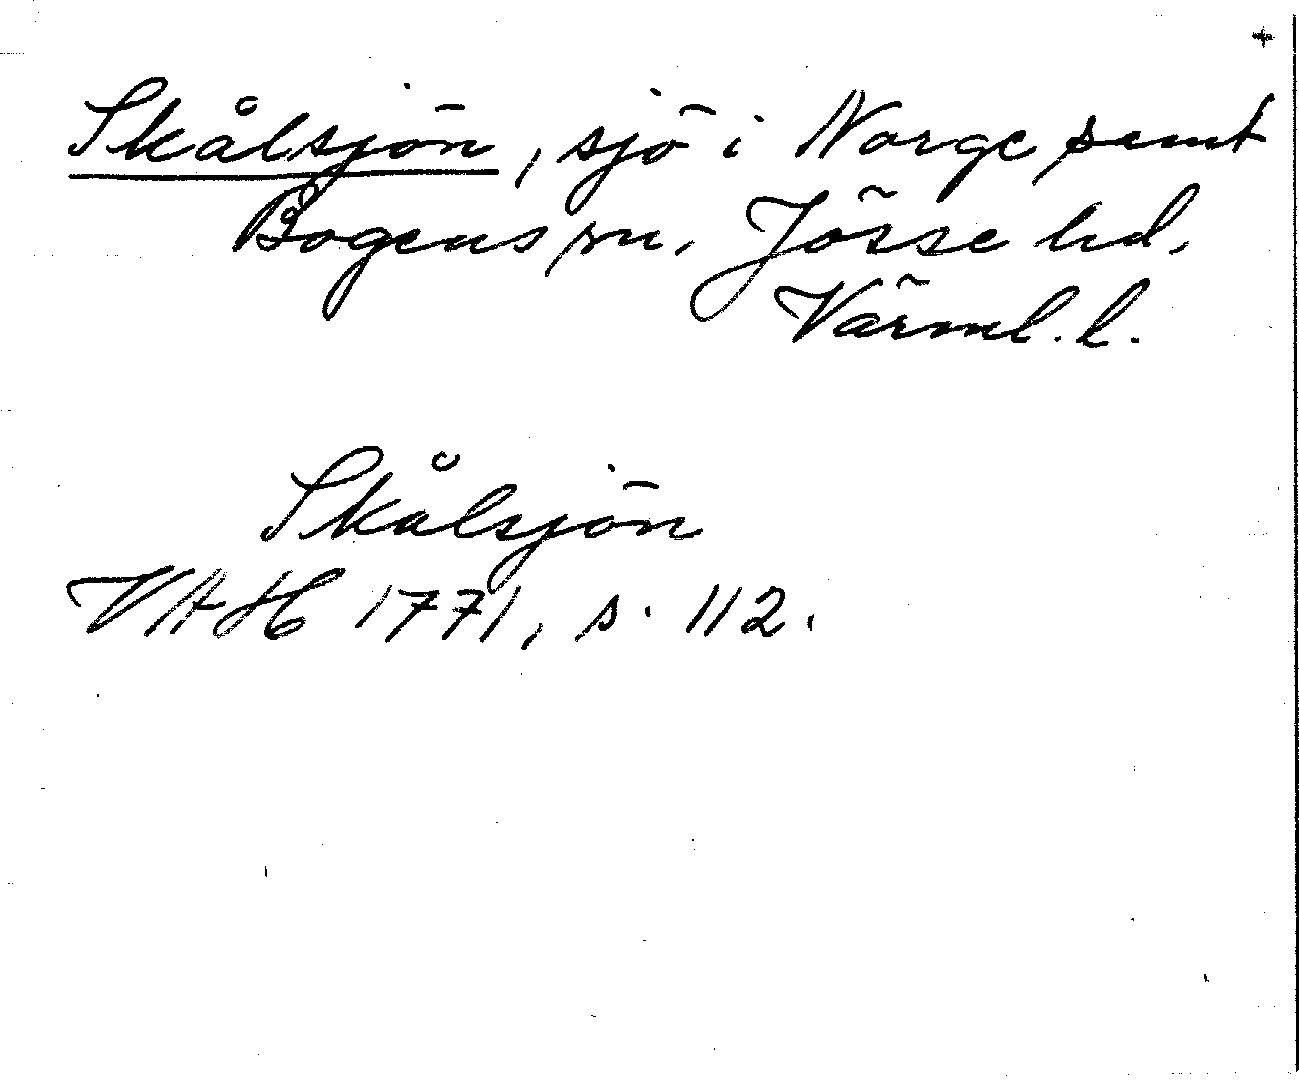 +
Skålsjön, sjö i Norge samt
Bogens sn, Jösse hd,
Värml. l.
Skålsjön
VAH 1771, s. 112.